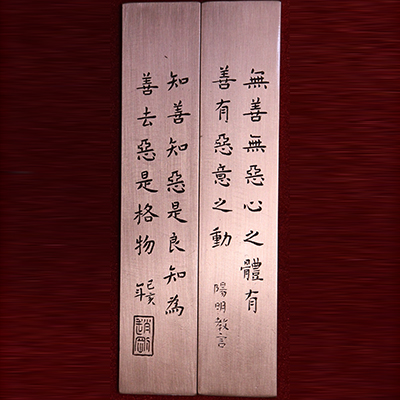 無善無惡心之體有
善有惡意之動
陽明教言
知善知惡是良知為
善去惡是格物
己亥年
趙剛